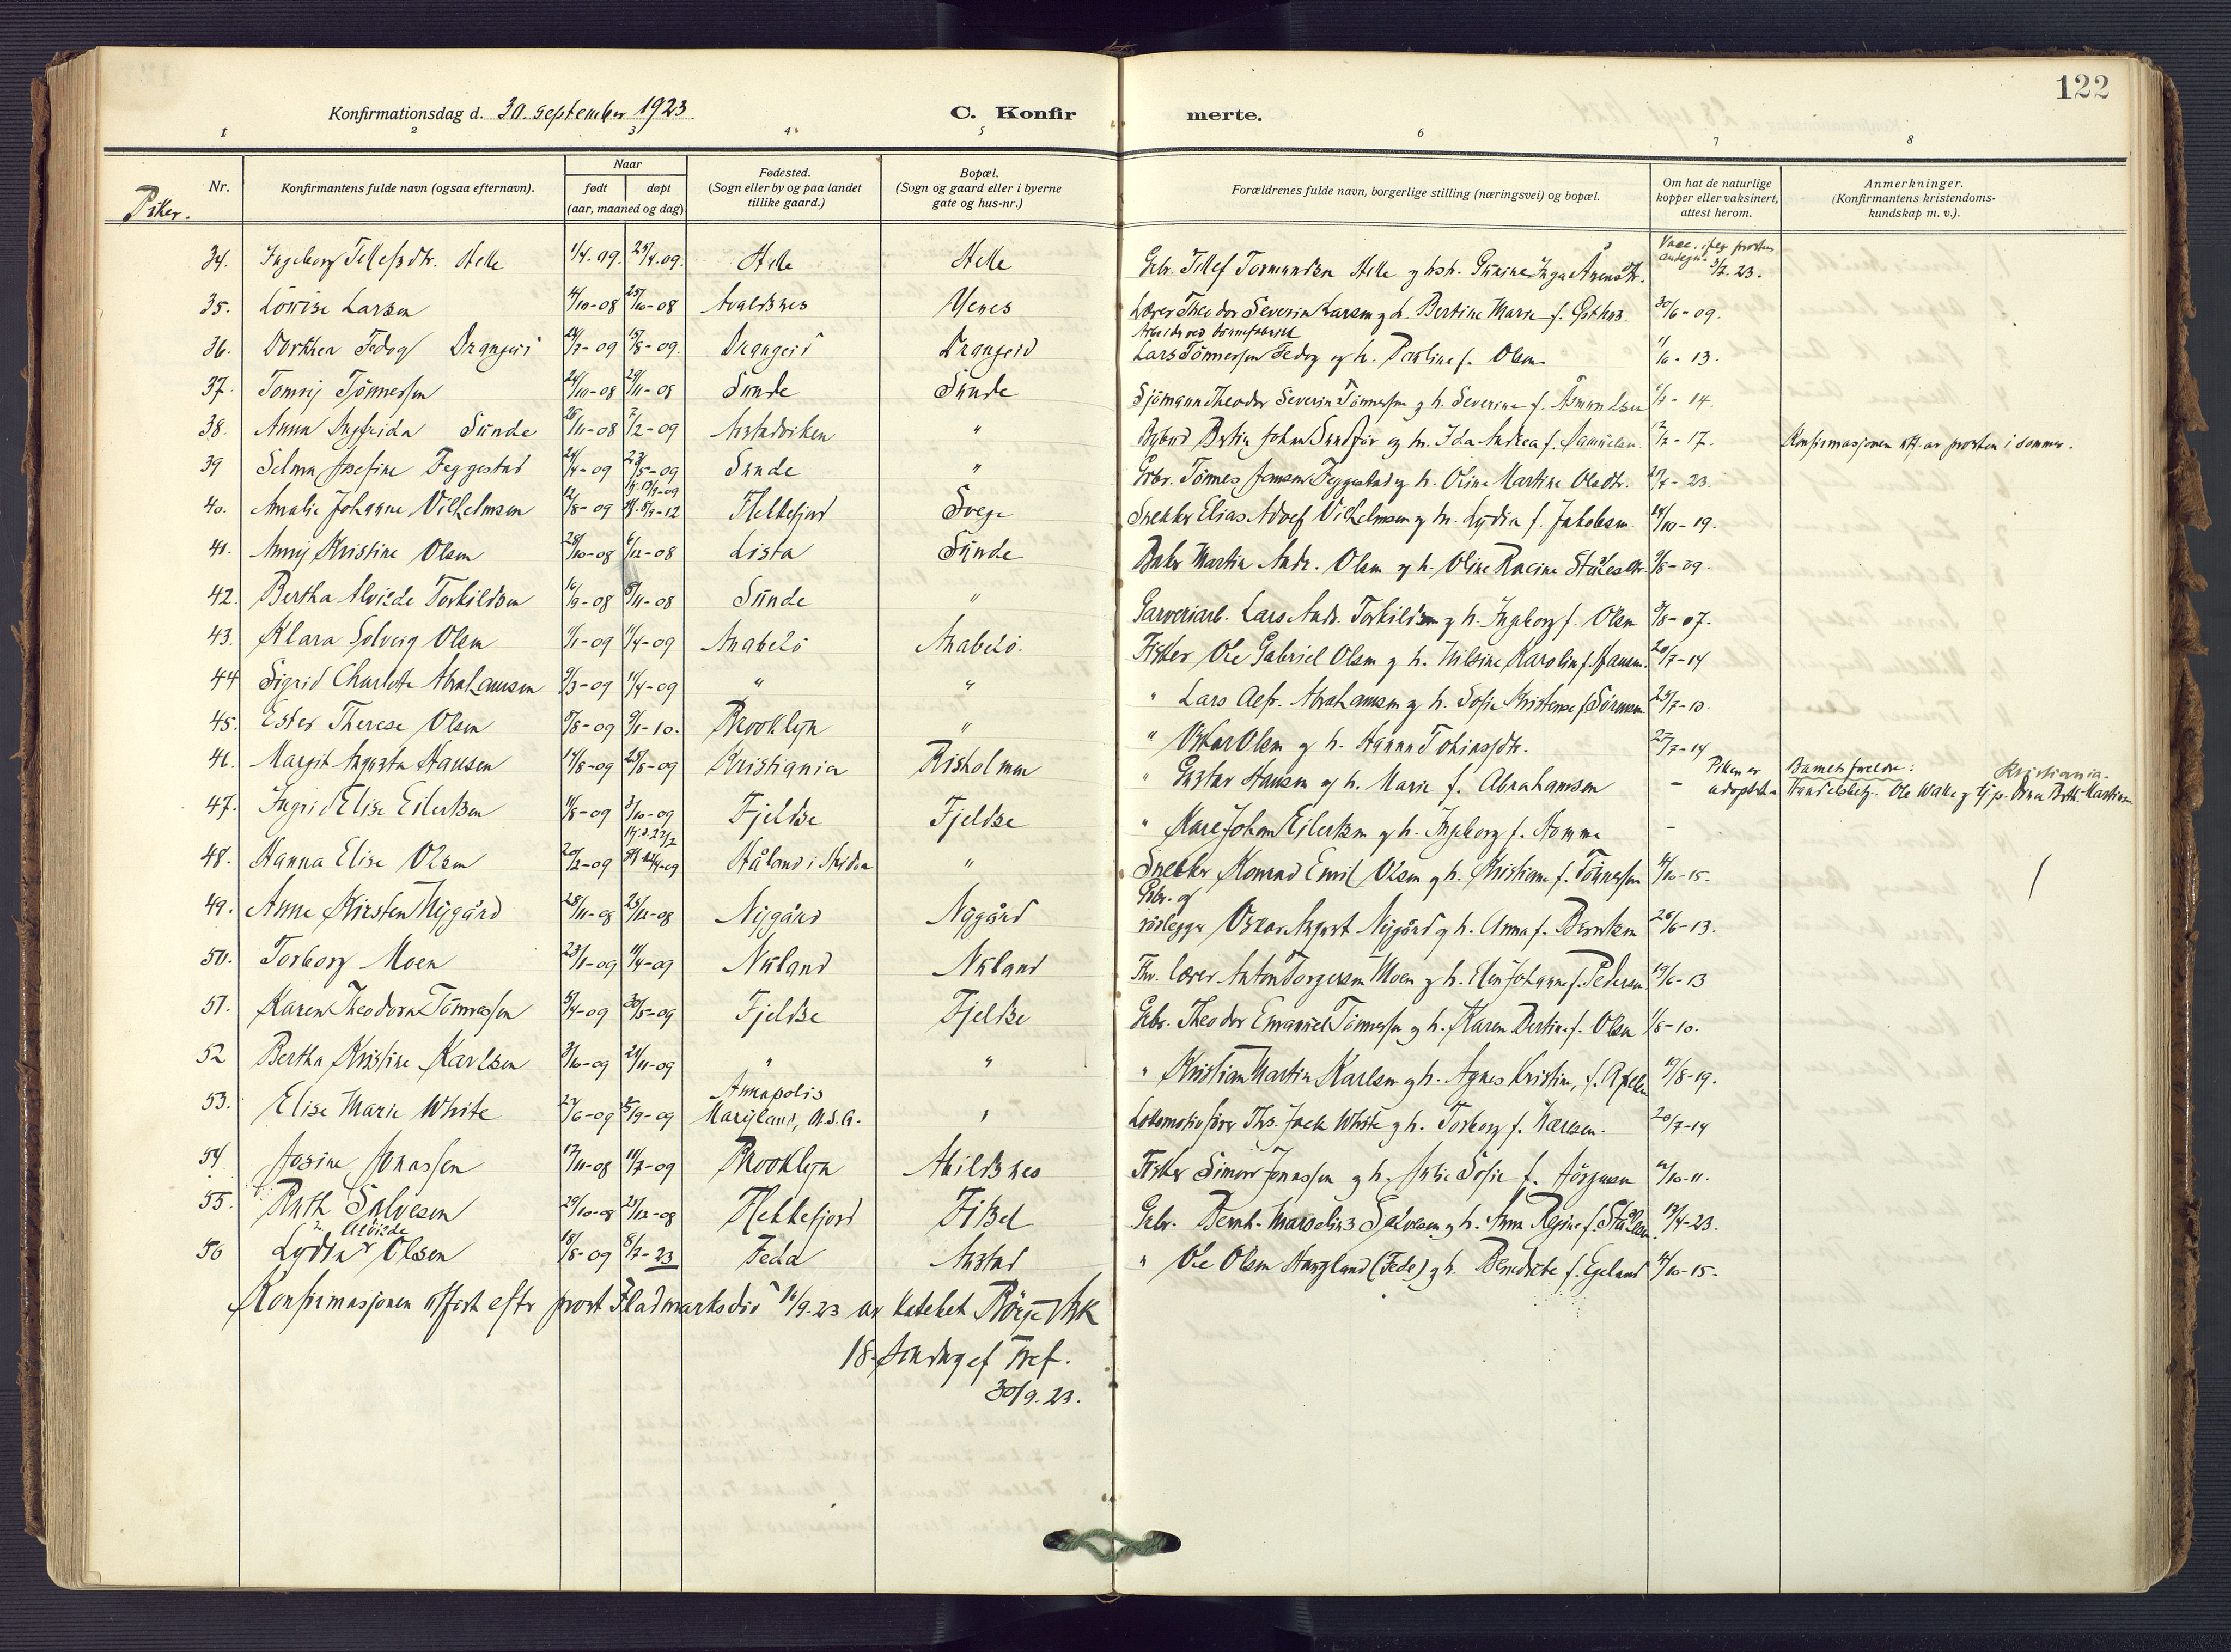 122
Konfirmationsdag d. 30. september 1923 C. Konfir merte.
1 2 3 4 5 6 7 8
Piker.
Nr.
Konfirmantens fulde navn (ogsaa efternavn).
Naar
født døpt
(aar, maaned og dag)
Fødested.
(Sogn eller by og paa landet
tillike gaard.)
Bopæl.
(Sogn og gaard eller i byerne
gate og hus-nr.)
Forældrenes fulde navn, borgerlige stilling (næringsvei) og bopæl.
Om hat de naturlige
kopper eller vaksinert,
attest herom.
Anmerkninger.
(Konfirmantens kristendoms-
kundskap m. v.).
34. Ingeborg Tellefsdtr. Helle 1/4.09. 25/4.09. Helle Helle Gbr. Tellef Tormundsen Helle og hst. Gurine Inga Ånensdtr. 3/2.23.
35. Lovise Larsen 4/10-08 25/10-08 Avaldsnes Yenes Lærer Theodor Severin Larsen og h. Bertine Marie f. Østhus 30/6-09.
Arbeider ved tønnefabrikk
36. Dorthea Fedog Drangeid 24/7-09 15/8-09. Drangeid Drangeid Lars Tønnessen Fedog og h. Pauline f. Olsen 1/6-13.
37. Tomvij Tönnessen 24/10-08 29/11-08 Sunde Sunde Sjömann Theodor Severin Tönnessen og h. Severine f. Åmundsen -14.
38. Anna Ingfrida Sunde 26/11-08 7/2-09 Anstadviken " Bertin Johan og h. Ida Andrea f. Samuelsen 12/2-17. Konfirmasjonen utf. av prosten i sommer.
39 Selma Josefine Feggestad 24/4-09 23/5-09 Sunde " Gbr. Tønnes Jensen Feggestad og h. Oline Martine Olsdtr. 27/4-23.
40. Amalie Johanne Vilhelmsen 12/8-09 Flekkefjord Svege Snekker Elias Adolf Vilhelmsen og h. Lydia f. Jakobsen 24/10-19.
41. Anny Kristine Olsen 28/10-08 6/12-08 Lista Sunde Baker Martin Andr. Olsen og h. Oline Racine Stålesdtr. 9/8-09.
42. Bertha Alvilde Torkildsen 16/9-08 8/11-08 Sunde " Garveriarb. Lars Andr. Torkildsen og h. Ingeborg f. Olsen 3/8-07.
43. Klara Solveig Olsen 11/1-09 11/4-09 Anabelö Anabelö. Fisker Ole Gabriel Olsen og h. Nilsine Karoline f. Hansen. 20/7-14
44 Sigrid Charlotte Abrahamsen 9/3-09 11/4-09 " " " Lars Alfr. Abrahamsen og h. Sofie Kristense f. Sörensen 23/7-10.
45. Ester Therese Olsen 8/8-09 9/1-10. Brooklyn " " Oskar Olsen og h. Hanna Tobiasdtr. 27/7-14
46. Margit Augusta Hansen 14/8-09 28/8-09 Kristiania Risholmen " Gustav Hansen og h. Marie f. Abrahamsen - Piken er adoptert. Barnets foreldre: Kristiania. Ole Wake
47. Ingrid Elise Eilertsen 11/8-09 3/10-09 Fjeldse Fjeldse " Kare Johan Eilertsen og h. Ingeborg f. Homme -
48. Hanna Elise Olsen 20/2-09 Håland i " Snekker Konrad Emil Olsen og h. Kristiane f. Tönnessen 4/10-15.
Gbr. og
49. Anne Kirsten Nygård 28/11-08 25/12-08 Nygård Nygård Oskar August Nygård og h. Anna f. Berntsen 26/6-13.
50. Torborg Moen 23/11-09 11/4-09 Nuland Nuland Fhv. lærer Anton Torgersen Moen og h. Elen Johanne f. Pedersen 19/6-13
51. Karen Theodora Tönnessen 5/4-09 30/5-09 Fjeldse Fjeldse Gbr. Theodor Emanuel Tönnessen og h. Karen Bertine f. Olsen 1/8-10.
52 Bertha Kristine Karlsen 3/10-09 21/11-09 " " " Kristian Martin Karlsen og h. Agnes Kristine, f. Axelsen 19/8-19.
Annapolis
53. Elise Marie White 24/6-09 5/9-09 Maryland, U.S.A. " Lokomotivfører Ths. Jack White og h. Torborg f. Karlsen. 20/7-14
54 Josine Jonassen 17/11-08 11/7-09 Brooklyn Abildsnes Fisker Simon Jonassen og h. Julie Sofie f. Jörgensen 12/10-11.
55. Ruth Salvesen 29/10-08 25/12-08 Flekkefjord Fiksel Gbr. Bernh. Marselius Salvesen og h. Anna Regine f. Ståles 19/4-23.
Alvilde
56 Lydia Olsen 18/8-09 8/7-23 Feda Anstad " Ole Olsen Haugland (Feda) og h. Benedicte f. Egeland 4/10-15.
Konfirmasjonen utført efter prost Fladmarks död 16/9.23 av kateket Börge
18. söndag ef Tref.
30/9.23.